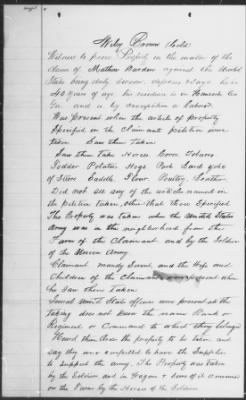 Wiley Brown (Cold)
Witness to prove Property in the matter of the
claim of Matthew Warden against the United
States being duly sworn, deposes & says he is
40 years of age his residence is in
Ga and is by occupation a Laborer.
Was present when the article of property
Specified in the Claimants petition were
taken Saw them Taken
Saw them Take Horse Corn
Fodder Potatoes Hogs Pork Lard
of Saddle Flour Poultry Leather
Did not see any of the articles named in
the petition Taken, other than those Specified
The Property was Taken when the United States
Army was in the neighborhood from the
Farm of the Claimant and by the Soldiers
of the Union Army
Claimant and the Wife and
Children of the Claimant present when
he Saw them Taken
United State officers were present at the
taking does not know the name Rank or
Regiment or Command to which they belonged
Heard them the property to be taken and
say they are compelled to have the Supplies
to support the army. The Property was Taken
by the Soldiers and in Wagons &
on the by the Horses of the Soldiers